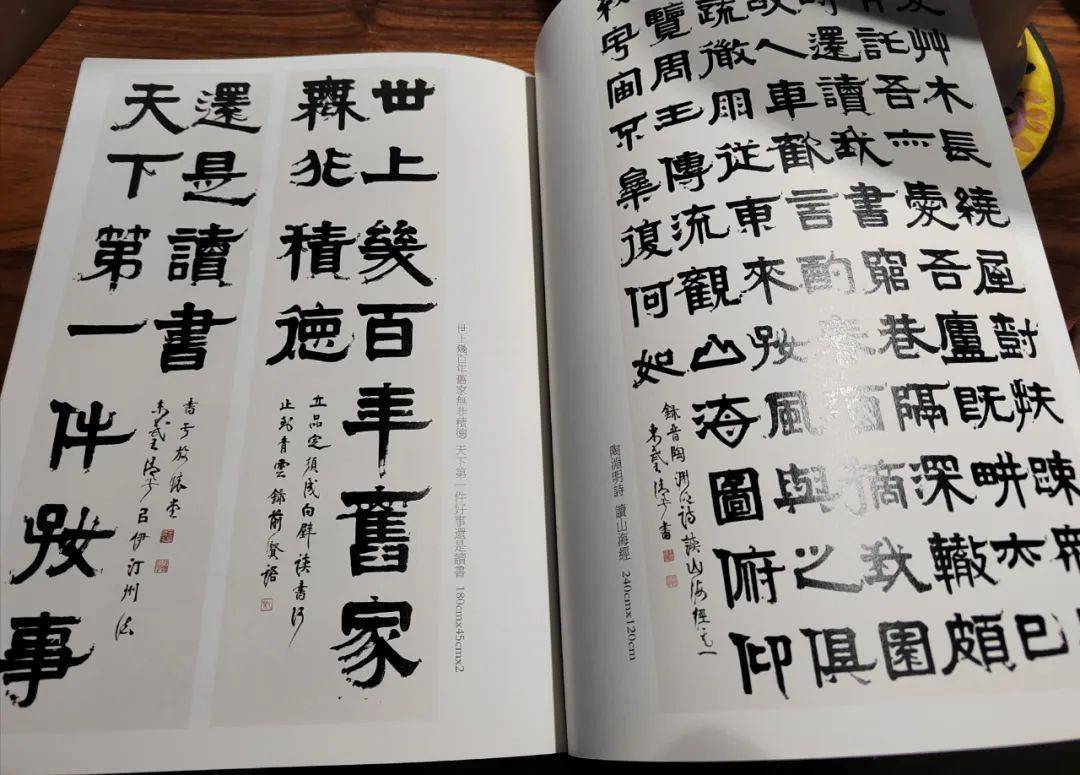 夏艸木長繞屋尌扶踈
有託吾亦愛吾廬既畊亦已
時還讀我書窮巷隔深轍頗
故人車歡言酌春酒摘我園
蔬微雨從東來好風與之俱
覽周王傳流觀山海圖俯仰
宇宙不樂復何如
錄晉陶淵明詩讀山海經之一
陶淵明詩 讀山海經 240cmx120cm
世上幾百年舊家無非積德 天下第一件好事還是讀書 180cmx45cmx2
世上幾百年舊家
無非積德
立品定須成白璧讀書何
止到青雲 錄前賢語
天下第一件好事
還是讀書